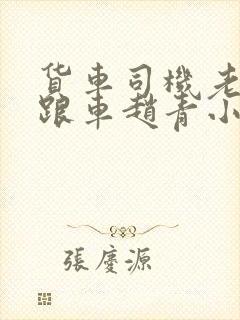 貨車司機老
跟車趙青小
張慶源